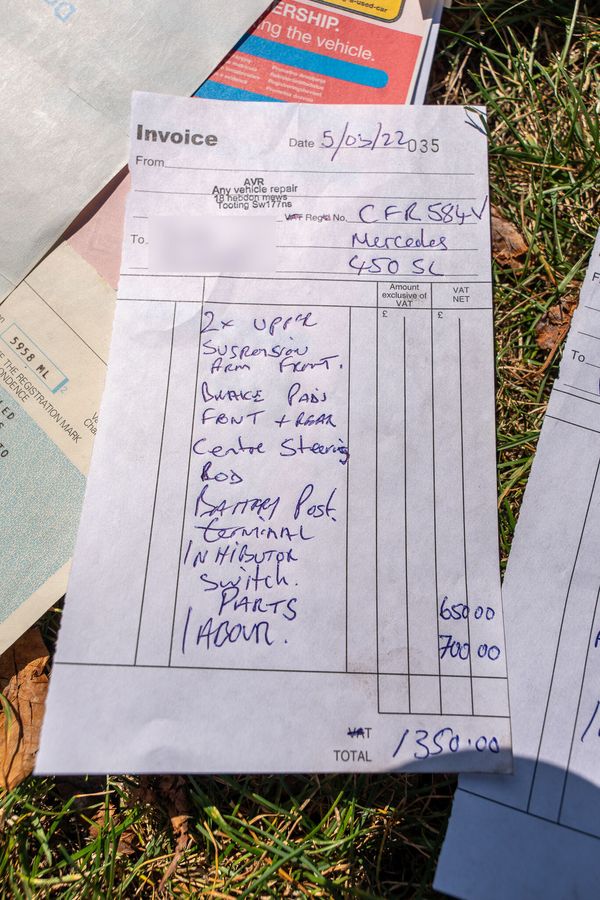 a-used-car
ERSHIP.
ng the vehicle.
Invoice
Date 5/03/22 035
From
AVR
Any vehicle repair
18 hebdon mews
Tooting Sw177ns
VAT Reg'd No. CFR 584V
To
Mercedes
450 SL
Amount exclusive of VAT
VAT NET
£ £
2x UPPER
SUSPENSION
ARM FRONT.
BRAKE PADS
FRONT + REAR
Centre Steering
ROD
BATTERY Post.
terminal
INHIBUTOR
Switch.
PARTS 650 00
LABOUR. 700 00
VAT
TOTAL 1350.00
5958 ML
E THE REGISTRATION MARK
PONDENCE
To